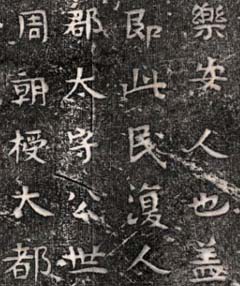 樂安人也盖
即此民復人
郡太守公世
周朝授大都